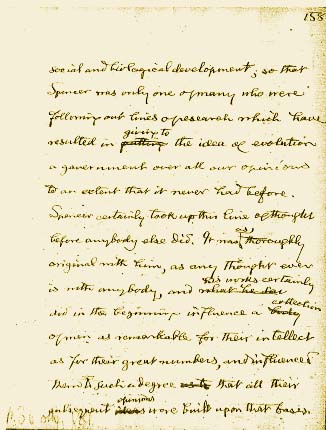 155
social and biological development, so that
Spencer was only one of many who were
following out lines of research which have
giving to
resulted in putting the idea of evolution
a government over all our opinions
to an extent that it never had before.
Spencer certainly took up this line of thought
before anybody else did. It was as thoroughly
original with him, as any thought ever
his works certainly
is with anybody, and what he has
collection
did in the beginning influence a body
of men as remarkable for their intellect
as for their great numbers, and influenced
them to such a degree as to that all their
opinions
subsequent ideas were built upon that basis.